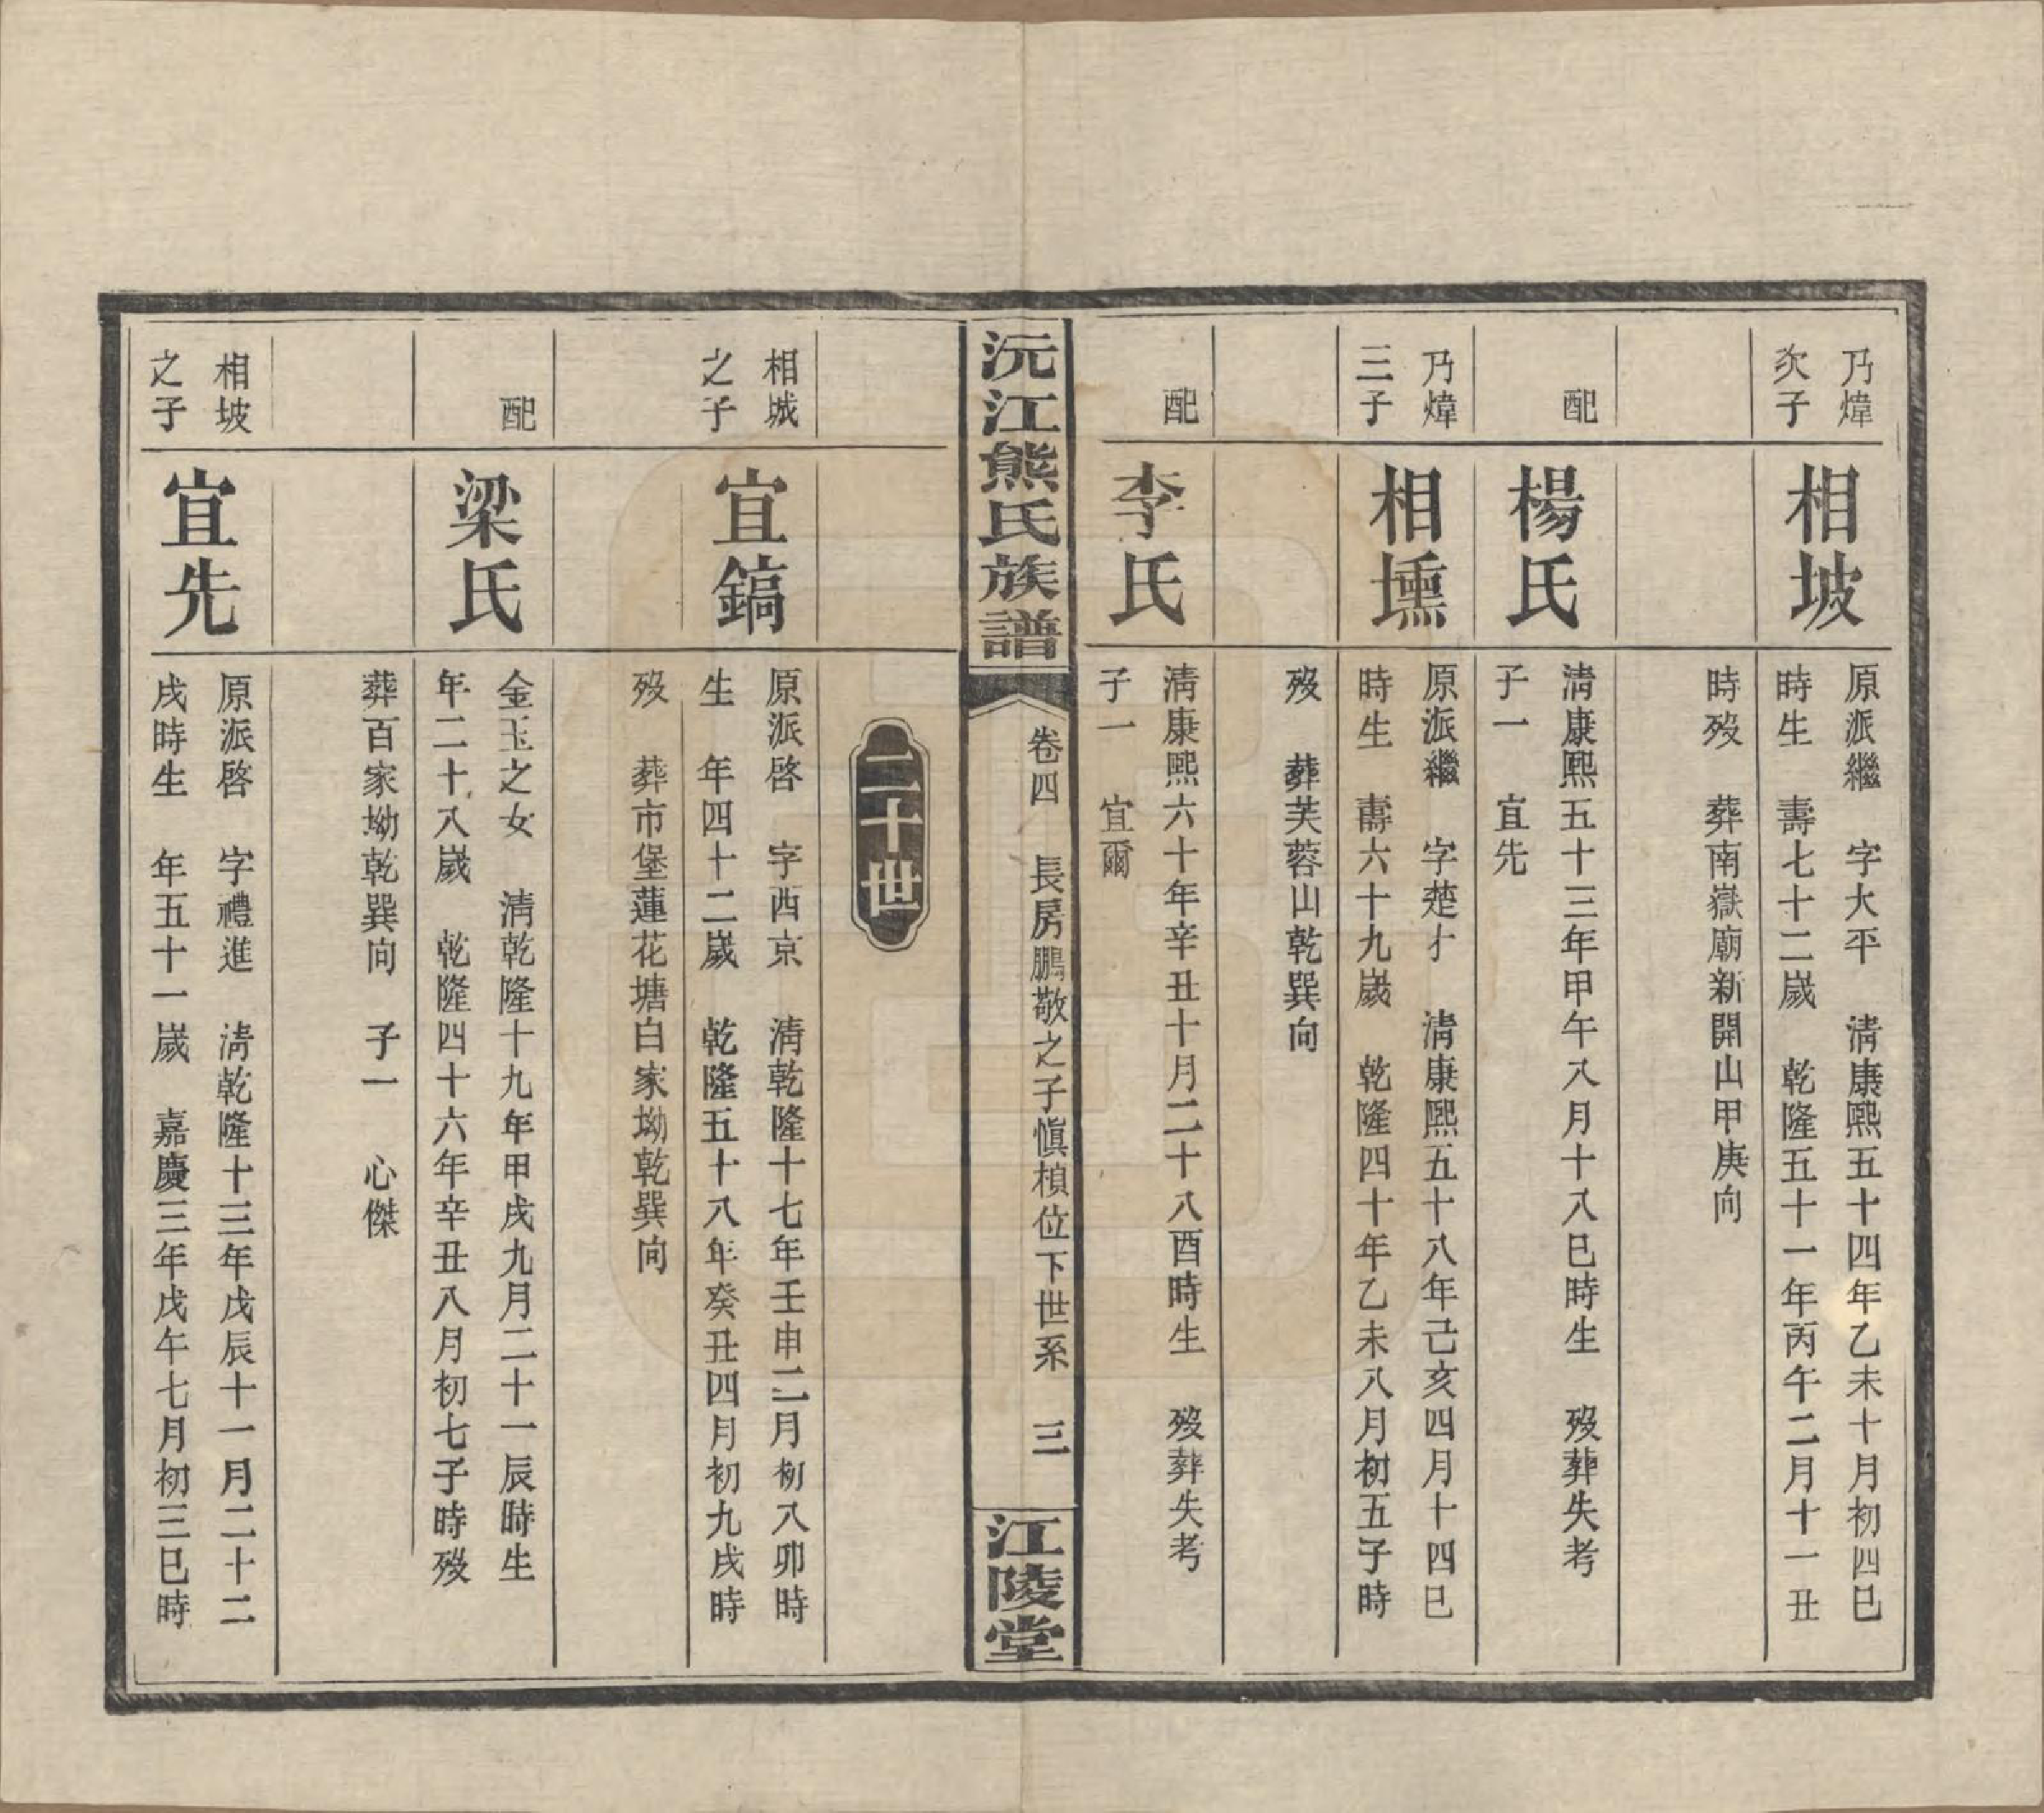 乃煒
次子
相坡
原派繼　字大平　清康熙五十四年乙未十月初四巳
時生　壽七十二歲　乾隆五十一年丙午二月十一丑
時歿　葬南嶽廟新開山甲庚向
配
楊氏
清康熙五十三年甲午八月十八巳時生　歿葬失考
子一　宜先
乃煒
三子
相壎
原派繼　字楚才　清康熙五十八年己亥四月十四巳
時生　壽六十九歲　乾隆四十年乙未八月初五子時
歿　葬芙蓉山乾巽向
配
李氏
清康熙六十年辛丑十月二十八酉時生　歿葬失考
子一　宜爾
沅江熊氏族譜
卷四　長房鵬敬之子愼楨位下世系　三
江陵堂
二十世
相城
之子
宜鎬
原派啓　字西京　清乾隆十七年壬申二月初八卯時
生　年四十二歲　乾隆五十八年癸丑四月初九戌時
歿　葬市堡蓮花塘白家坳乾巽向
配
梁氏
金玉之女　清乾隆十九年甲戌九月二十一辰時生
年二十八歲　乾隆四十六年辛丑八月初七子時歿
葬百家坳乾巽向　子一　心傑
相坡
之子
宜先
原派啓　字禮進　清乾隆十三年戊辰十一月二十二
戌時生　年五十一歲　嘉慶三年戊午七月初三巳時